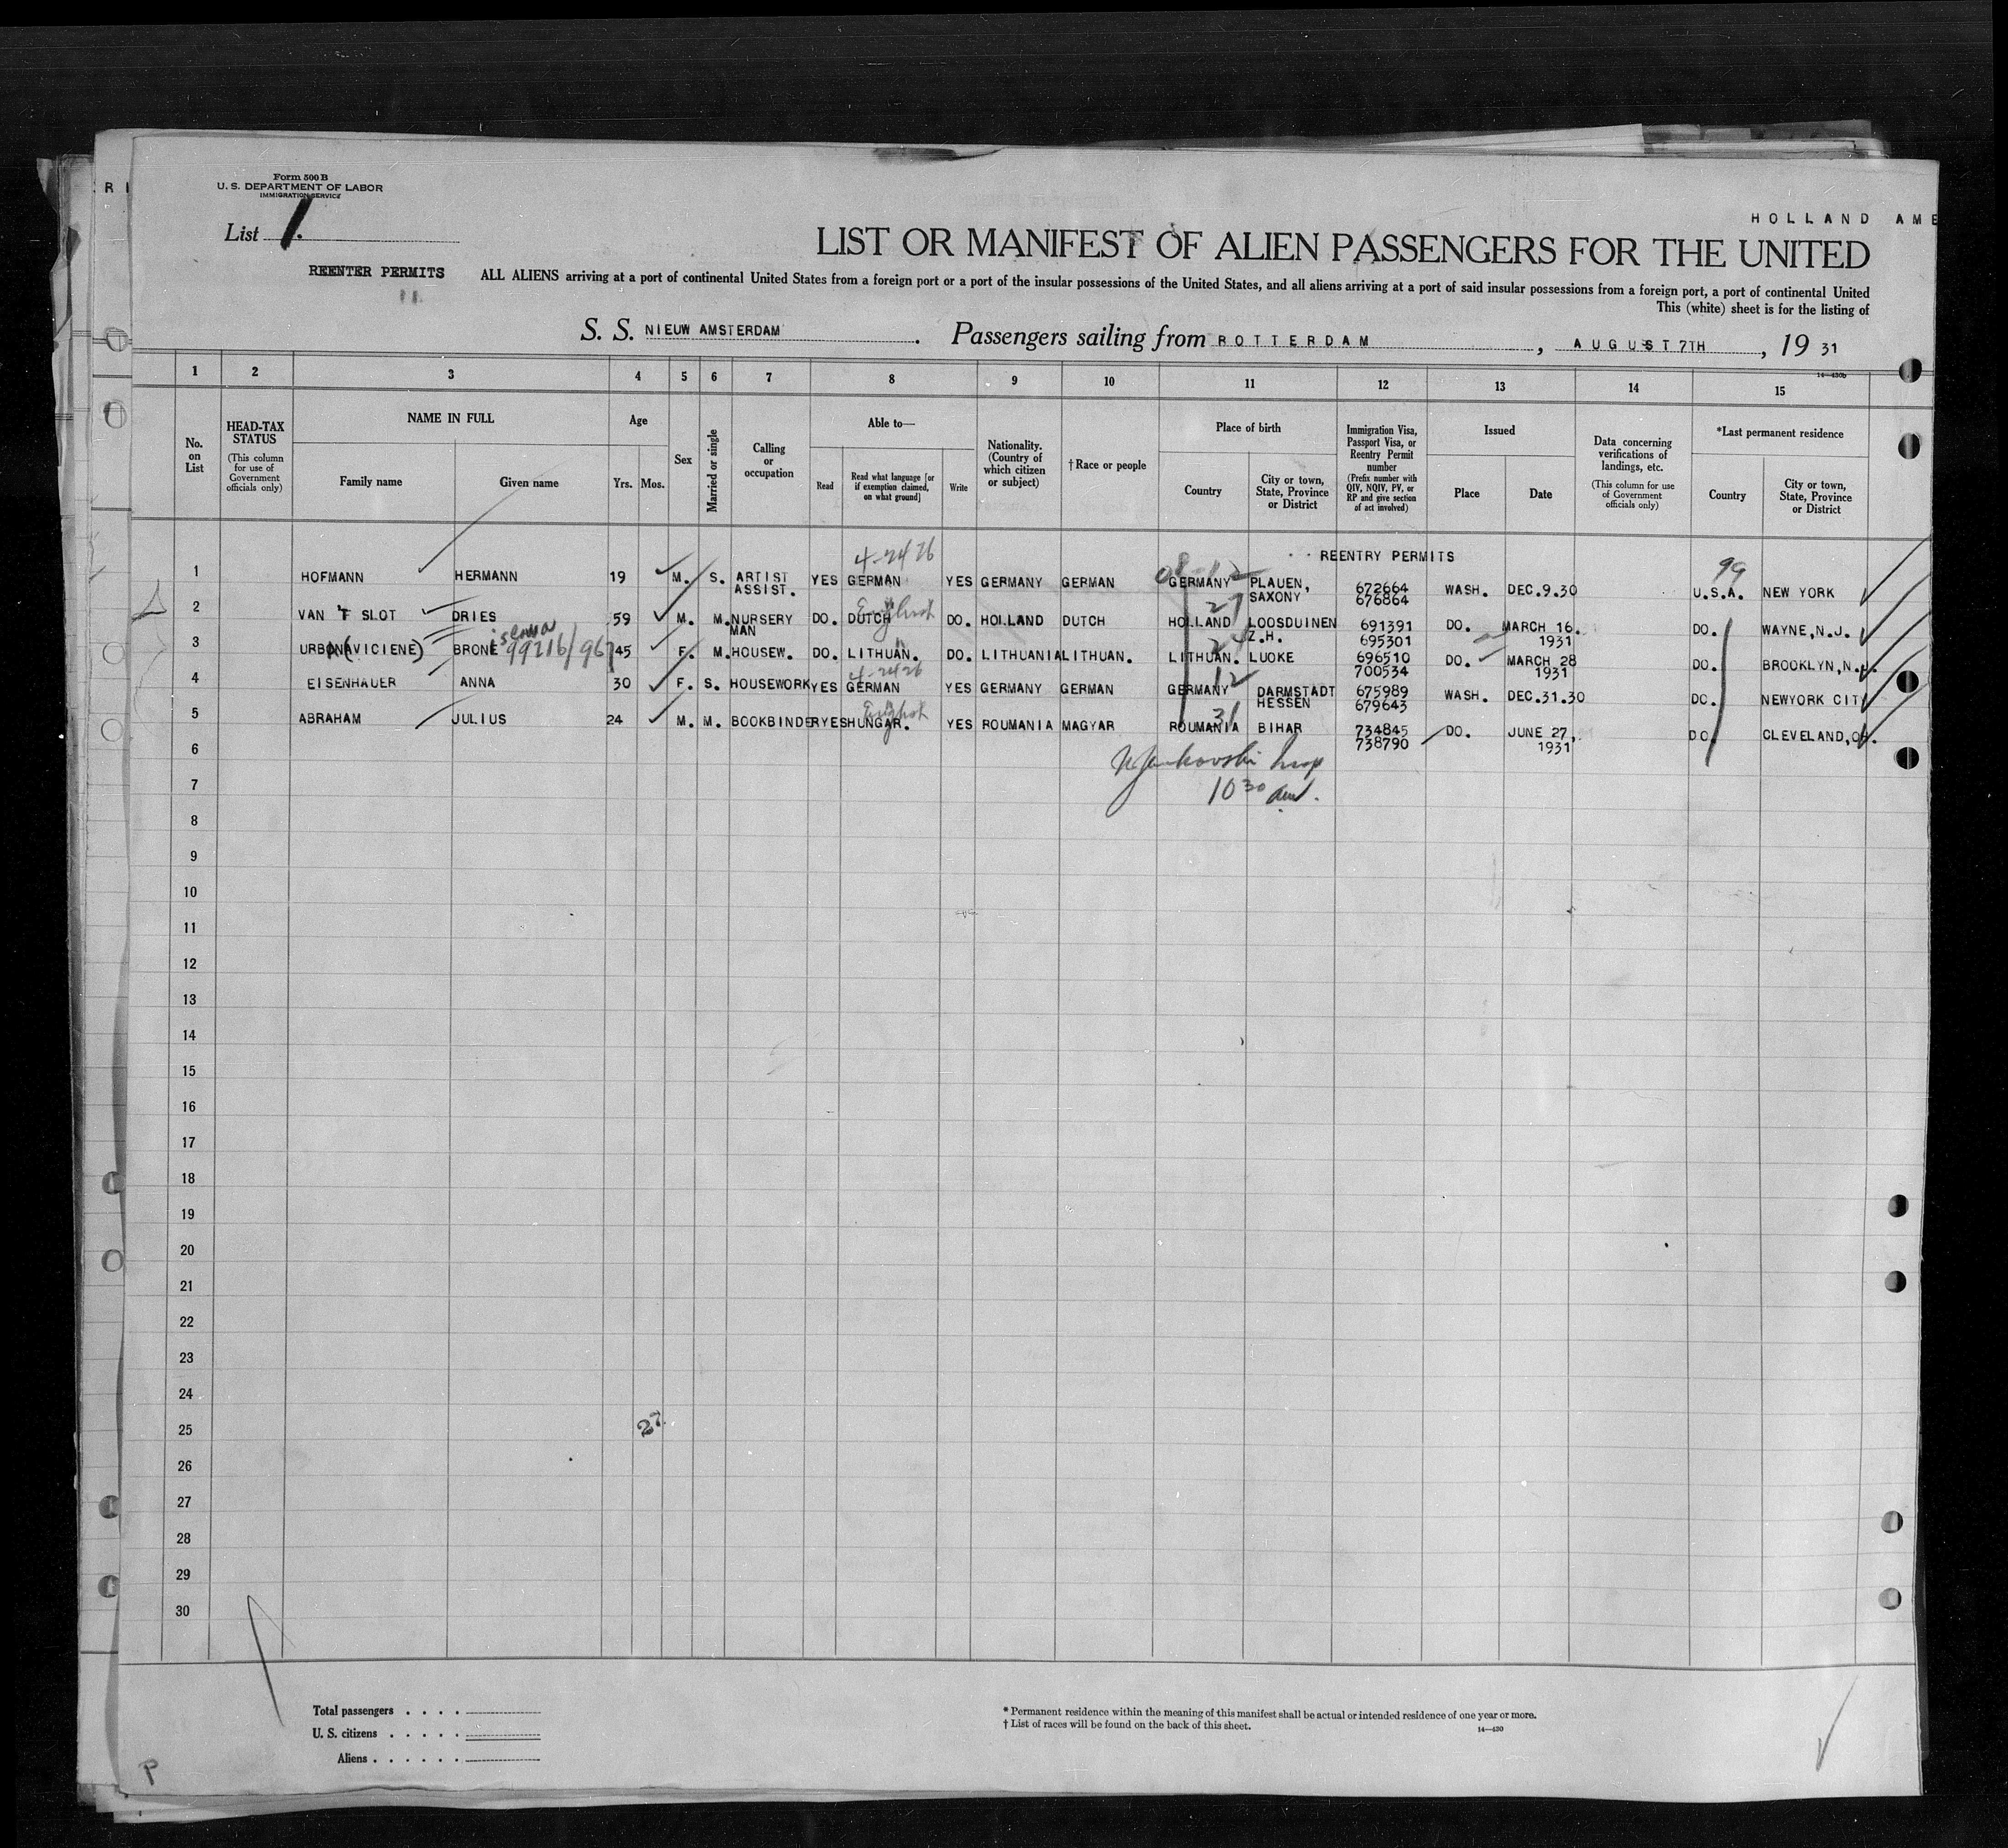 Form 500 B
U. S. DEPARTMENT OF LABOR
IMMIGRATION SERVICE
List 1.
HOLLAND AME
LIST OR MANIFEST OF ALIEN PASSENGERS FOR THE UNITED
REENTER PERMITS
11
ALL ALIENS arriving at a port of continental United States from a foreign port or a port of the insular possessions of the United States, and all aliens arriving at a port of said insular possessions from a foreign port, a port of continental United
This (white) sheet is for the listing of
S. S. NIEUW AMSTERDAM . Passengers sailing from ROTTERDAM , AUGUST 7TH , 19 31
14—430b
1 2 3 4 5 6 7 8 9 10 11 12 13 14 15
No. on List
HEAD-TAX STATUS (This column for use of Government officials only)
NAME IN FULL
Family name
Given name
Age
Yrs. Mos.
Sex
Married or single
Calling or occupation
Able to—
Read
Read what language [or if exemption claimed, on what ground]
Write
Nationality. (Country of which citizen or subject)
†Race or people
Place of birth
Country
City or town, State, Province or District
Immigration Visa, Passport Visa, or Reentry Permit number (Prefix number with QIV, NQIV, PV, or RP and give section of act involved)
Issued
Place
Date
Data concerning verifications of landings, etc. (This column for use of Government officials only)
*Last permanent residence
Country
City or town, State, Province or District
REENTRY PERMITS
4-24 26
99
1 HOFMANN HERMANN 19 M. S. ARTIST ASSIST. YES GERMAN YES GERMANY GERMAN GERMANY PLAUEN, SAXONY, 672664 676864 WASH. DEC.9.30 U.S.A. NEW YORK
English
27
2 VAN 'T SLOT DRIES 59 M. M. NURSERY MAN DO. DUTCH DO. HOLLAND DUTCH HOLLAND LOOSDUINEN Z.H. 691391 695301 DO. MARCH 16. 1931 DO. WAYNE,N.J.
99216/967
24
3 URBONA(VICIENE) BRONE 45 F. M. HOUSEW. DO. LITHUAN. DO. LITHUANIA LITHUAN. LITHUAN. LUOKE 696510 700534 DO. MARCH 28 1931 DO. BROOKLYN,N.J.
4-24 26
12
4 EISENHAUER ANNA 30 F. S. HOUSEWORK YES GERMAN YES GERMANY GERMAN GERMANY DARMSTADT HESSEN 675989 679643 WASH. DEC.31.30 DO. NEWYORK CITY
English
31
5 ABRAHAM JULIUS 24 M. M. BOOKBINDER YES HUNGAR. YES ROUMANIA MAGYAR ROUMANIA BIHAR 734845 738790 DO. JUNE 27, 1931 DO. CLEVELAND,OH.
6
10 30 am.
7
8
9
10
11
12
13
14
15
16
17
18
19
20
21
22
23
24
27
25
26
27
28
29
30
Total passengers . . . .
U. S. citizens . . . . .
Aliens . . . . . .
* Permanent residence within the meaning of this manifest shall be actual or intended residence of one year or more.
† List of races will be found on the back of this sheet.
14—430
P